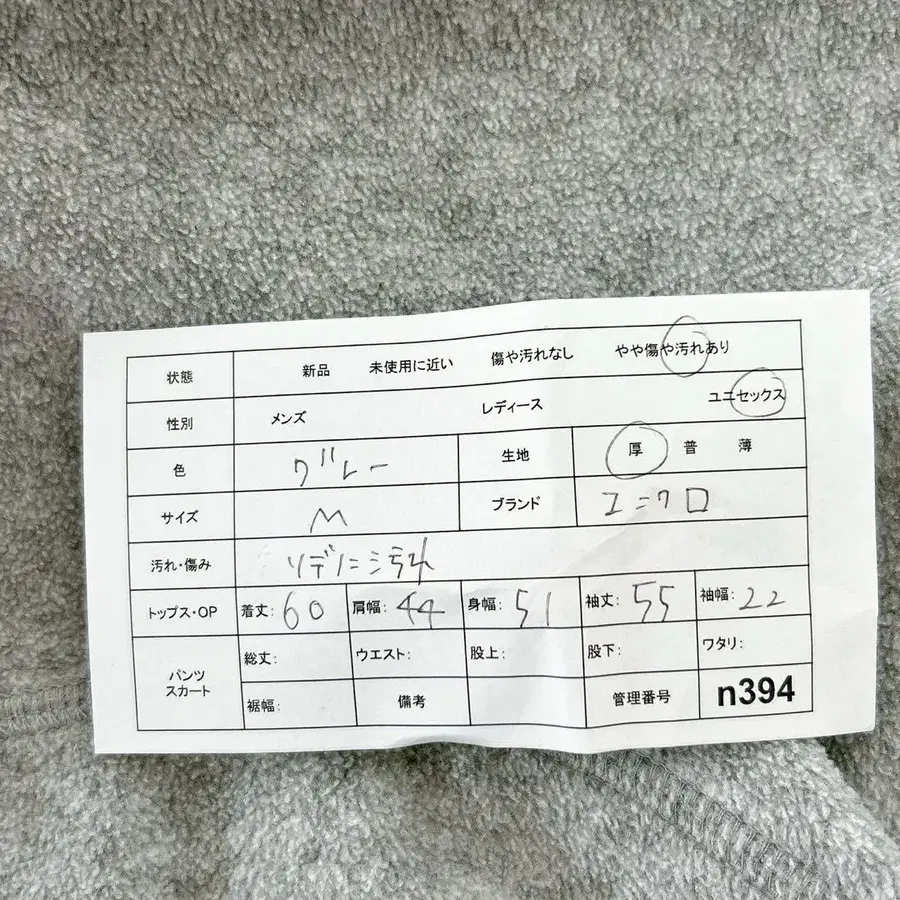 状態 新品 未使用に近い 傷や汚れなし やや傷や汚れあり
性別 メンズ レディース ユニセックス
色 グレー 生地 厚 普 薄
サイズ M ブランド ユニクロ
汚れ・傷み ソデに汚れ
トップス・OP 着丈: 60 肩幅: 44 身幅: 51 袖丈: 55 袖幅: 22
パンツ スカート 総丈: ウエスト: 股上: 股下: ワタリ:
裾幅: 備考 管理番号 n394